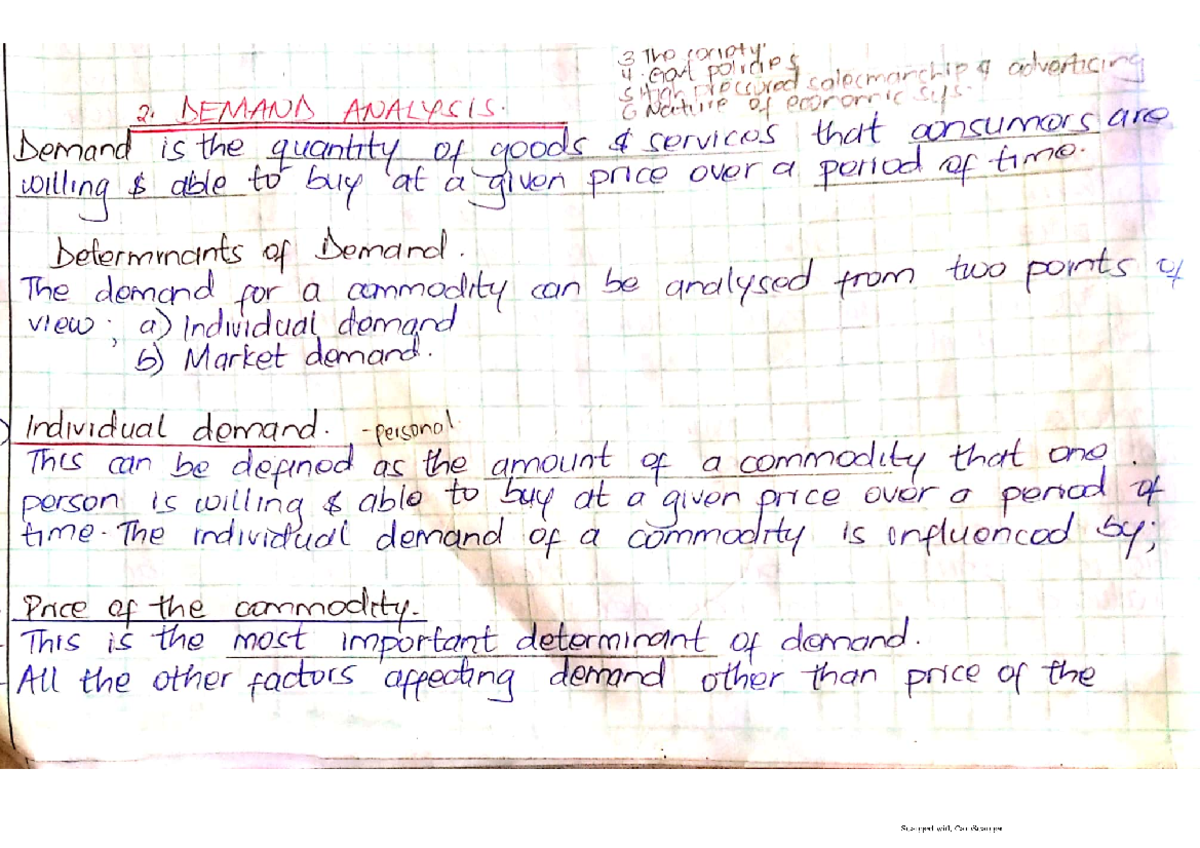 3 The society.
4. Govt policies
5 High pressured salesmanship & advertising
6 Nature of economic sys.
2. DEMAND ANALYSIS.
Demand is the quantity of goods & services that consumers are
willing & able to buy at a given price over a period of time.
Determinants of Demand.
The demand for a commodity can be analysed from two points of
view; a) Individual demand
b) Market demand.
Individual demand. - personal.
This can be defined as the amount of a commodity that one
person is willing & able to buy at a given price over a period of
time. The individual demand of a commodity is influenced by;
Price of the commodity.
This is the most important determinant of demand.
All the other factors affecting demand other than price of the
Scanned with CamScanner